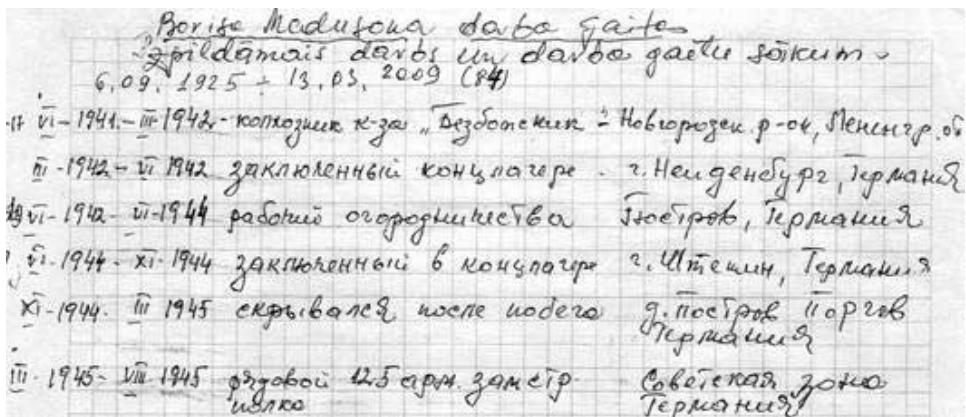 Borisa Madusona darba gaita
Izpildāmais darbs un darba gaitu sākums
6.09.1925 - 13.03.2009 (84)
VI-1941-III-1942-колхозник к-за „Безбожник" - Новгородск. р-он, Ленингр. об
III-1942-VI 1942 заключенный концлагере - г. Неиденбург, Германия
VI-1942-VI-1944 рабочий огородничества Гюстров, Германия
VI-1944-XI-1944 заключенный в концлагере г. Штетин, Германия
XI-1944. III 1945 скрывался после побега д. Гюстров Поргов
Германия
III-1945-VIII 1945 рядовой 125 арм. зам стр. Советская зона
полка Германия